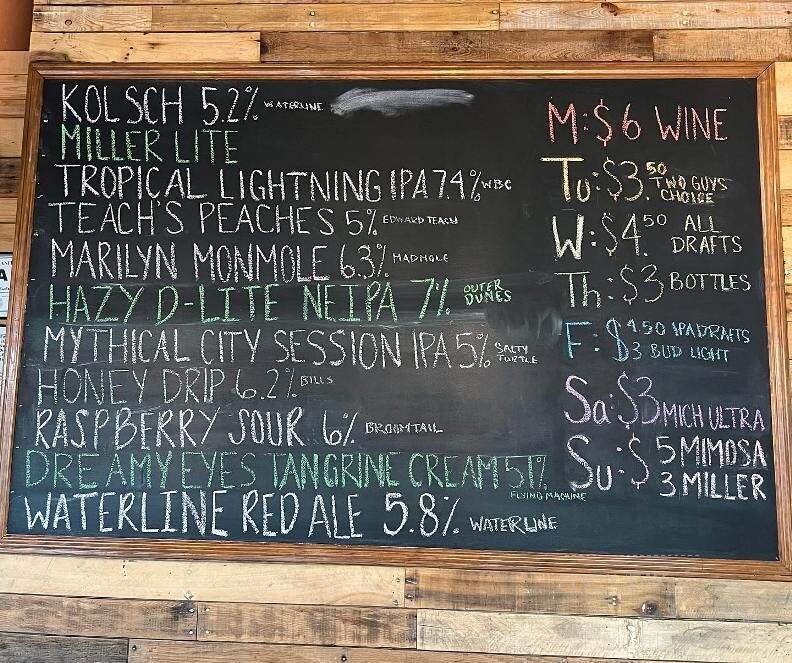 KOLSCH 5.2% WATERLINE
MILLER LITE
TROPICAL LIGHTNING IPA 7.4% WBC
TEACH'S PEACHES 5% EDWARD TEACH
MARILYN MONMOLE 6.3% MADMOLE
HAZY D-LITE NEIPA 7% OUTER DUNES
MYTHICAL CITY SESSION IPA 5% SALTY TURTLE
HONEY DRIP 6.2% BILLS
RASPBERRY SOUR 6% BROOMTAIL
DREAMY EYES TANGRINE CREAM 5.1% FLYING MACHINE
WATERLINE RED ALE 5.8% WATERLINE
M: $6 WINE
Tu: $3.50 TWO GUYS CHOICE
W: $4.50 ALL DRAFTS
Th: $3 BOTTLES
F: $4.50 IPA DRAFTS
$3 BUD LIGHT
Sa: $3 MICH ULTRA
Su: $5 MIMOSA
3 MILLER